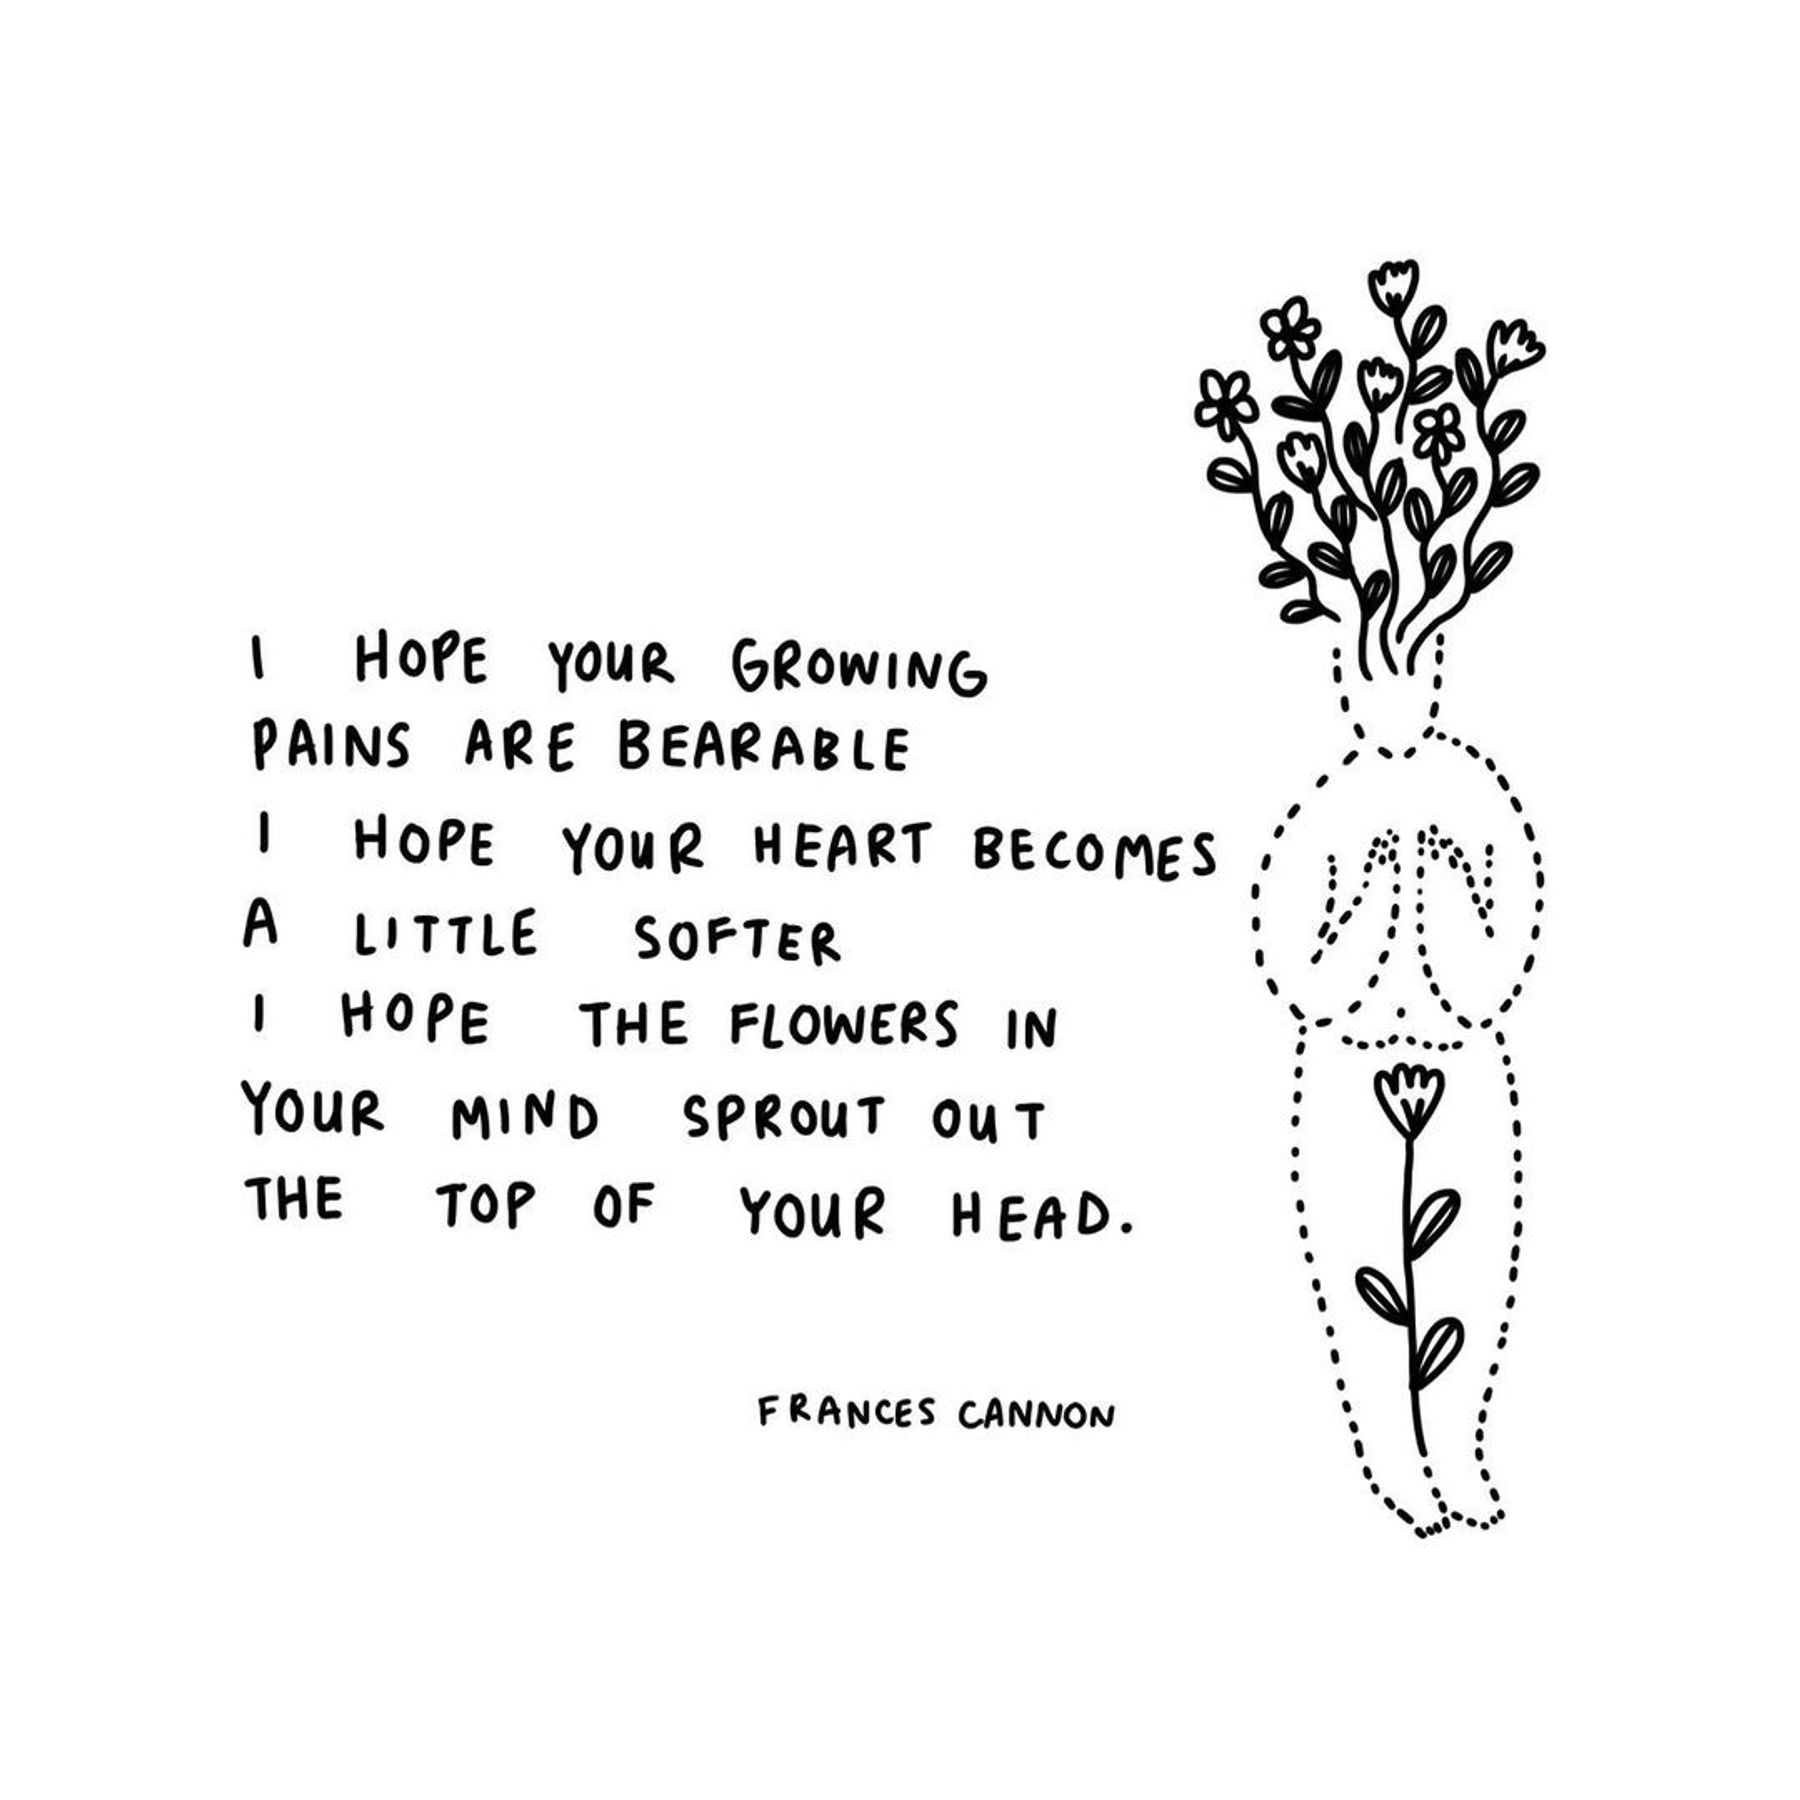 I HOPE YOUR GROWING
PAINS ARE BEARABLE
I HOPE YOUR HEART BECOMES
A LITTLE SOFTER
I HOPE THE FLOWERS IN
YOUR MIND SPROUT OUT
THE TOP OF YOUR HEAD.
FRANCES CANNON